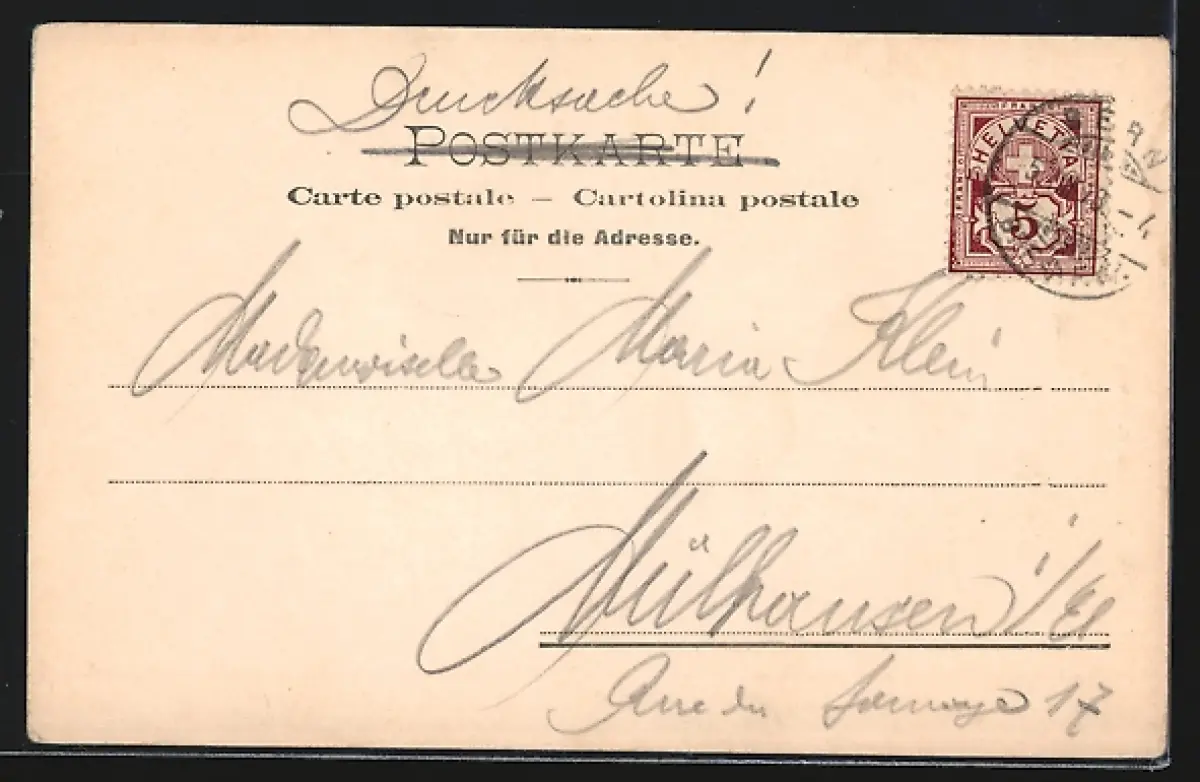 Drucksache!
POSTKARTE
Carte postale – Cartolina postale
Nur für die Adresse.
FRANCO
HELVETIA
FRANCO
5
Mademoiselle Maria Klein
Mülhausen i/El
Rue du 17